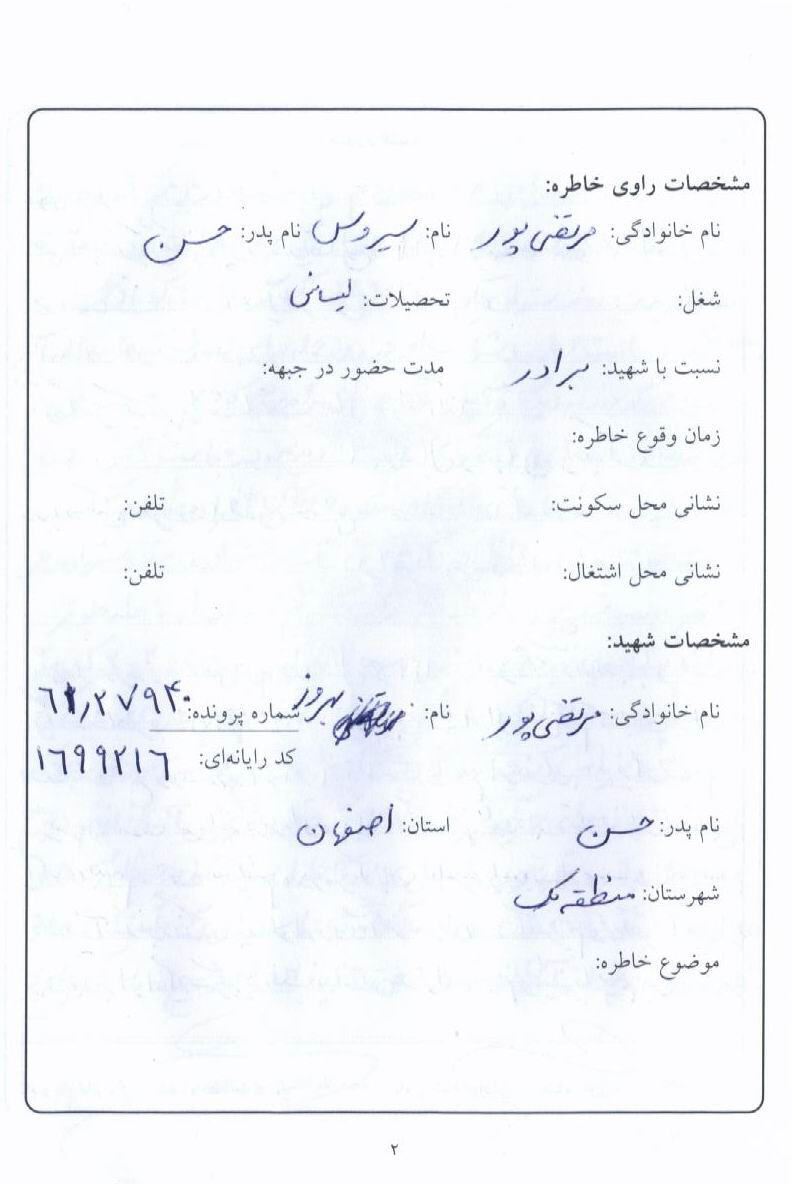 مشخصات راوی خاطره:
نام خانوادگی: مرتضی پور نام: سیروس نام پدر: حسن
شغل: تحصیلات: لیسانس
نسبت با شهید: برادر مدت حضور در جبهه:
زمان وقوع خاطره:
نشانی محل سکونت: تلفن:
نشانی محل اشتغال: تلفن:
مشخصات شهید:
نام خانوادگی: مرتضی پور نام: بهروز شماره پرونده:
کد رایانه‌ای: ۱۶۹۹۲۱۶
نام پدر: حسن استان: اصفهان
شهرستان: منطقه یک
موضوع خاطره:
۲